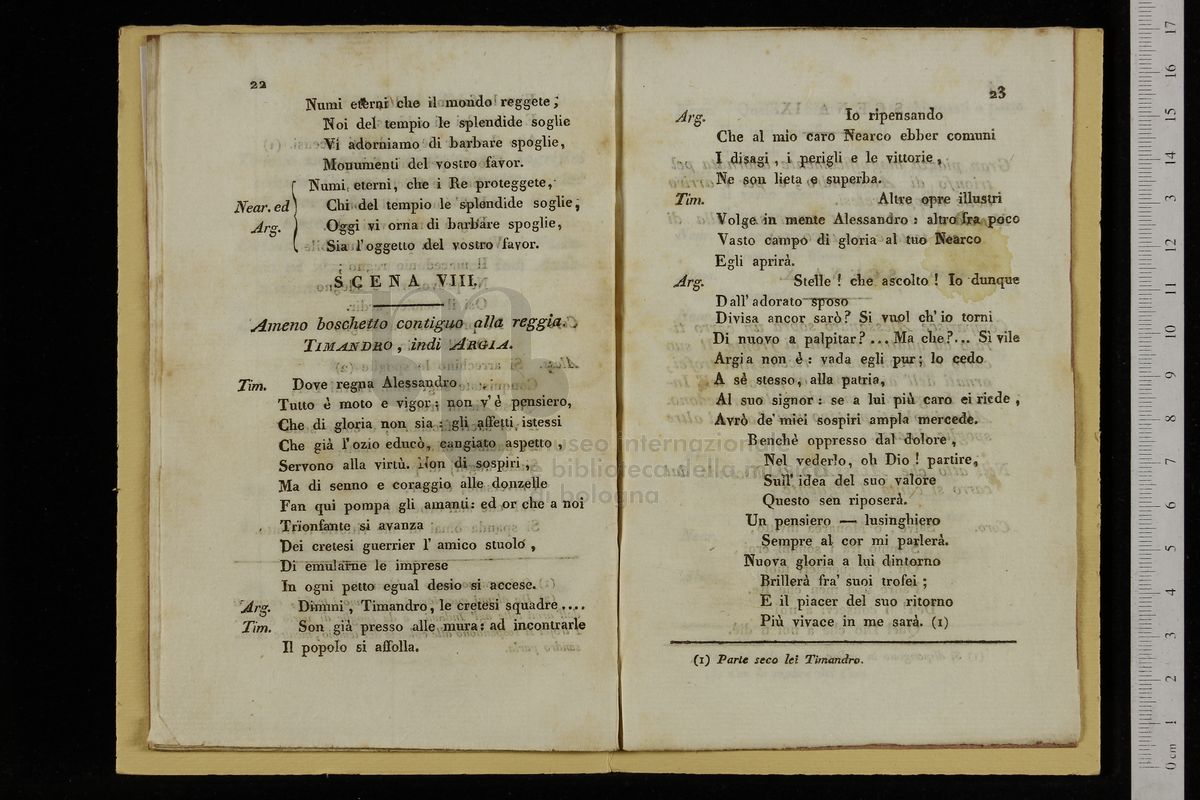 22
Numi eterni che il mondo reggete;
Noi del tempio le splendide soglie
Vi adorniamo di barbare spoglie,
Monumenti del vostro favor.
Numi eterni, che i Re proteggete,
Near. ed Chi del tempio le splendide soglie,
Arg. Oggi vi orna di barbare spoglie,
Sia l'oggetto del vostro favor.
SCENA VIII.
Ameno boschetto contiguo alla reggia.
TIMANDRO, indi ARGIA.
Tim. Dove regna Alessandro
Tutto è moto e vigor; non v'è pensiero,
Che di gloria non sia: gli affetti istessi
Che già l'ozio educò, cangiato aspetto,
Servono alla virtù. Non di sospiri,
Ma di senno e coraggio alle donzelle
Fan qui pompa gli amanti: ed or che a noi
Trionfante si avanza
Dei cretesi guerrier l'amico stuolo,
Di emularne le imprese
In ogni petto egual desio si accese.
Arg. Dimmi, Timandro, le cretesi squadre....
Tim. Son già presso alle mura: ad incontrarle
Il popolo si affolla.
23
Arg. Io ripensando
Che al mio caro Nearco ebber comuni
I disagi, i perigli e le vittorie,
Ne son lieta e superba.
Tim. Altre opre illustri
Volge in mente Alessandro: altro fra poco
Vasto campo di gloria al tuo Nearco
Egli aprirà.
Arg. Stelle! che ascolto! Io dunque
Dall'adorato sposo
Divisa ancor sarò? Si vuol ch'io torni
Di nuovo a palpitar?... Ma che?... Sì vile
Argia non è: vada egli pur; lo cedo
A sè stesso, alla patria,
Al suo signor: se a lui più caro ei riede,
Avrò de' miei sospiri ampla mercede.
Benchè oppresso dal dolore,
Nel vederlo, oh Dio! partire,
Sull'idea del suo valore
Questo sen riposerà.
Un pensiero — lusinghiero
Sempre al cor mi parlerà.
Nuova gloria a lui dintorno
Brillerà fra' suoi trofei;
E il piacer del suo ritorno
Più vivace in me sarà. (1)
(1) Parte seco lei Timandro.
museo internazionale
e biblioteca della musica
di bologna
0 cm 1 2 3 4 5 6 7 8 9 10 11 12 13 14 15 16 17